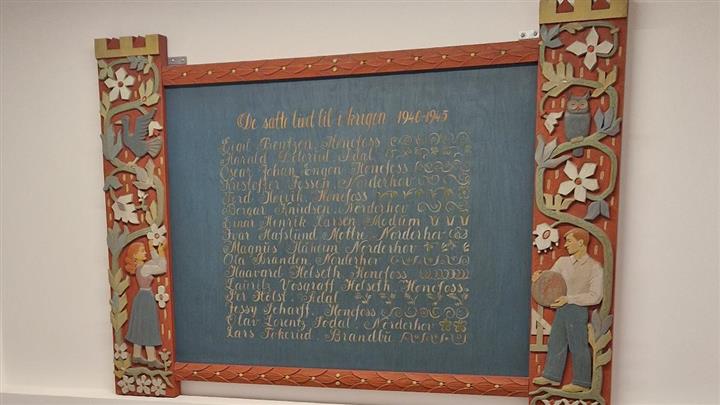 De satte livet til i krigen 1940-1945
Egil Berntzen Hønefoss
Harald Ådal
Oscar Johan Engen Hønefoss
Kristoffer Fossen Norderhov
Ferd Hønefoss
Birgar Knudsen Norderhov
Einar Henrik Larsen Modum
Ivar Hafslund Mothe Norderhov
Magnus Haheim Norderhov
Ola Branden Norderhov
Haavard Helseth Hønefoss
Lauritz Vosgraff Helseth Hønefoss
Per Holst Ådal
Jessy Scharff Hønefoss
Olav Lorentz Norderhov
Lars Tokerud Brandbu